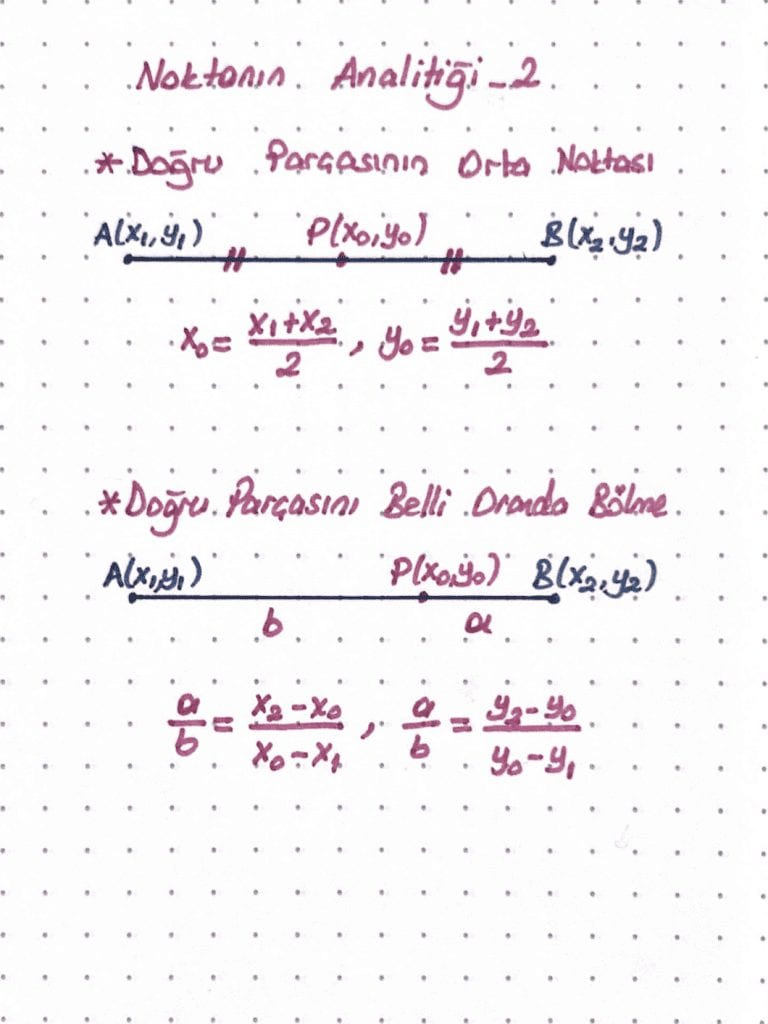 Noktanın Analitiği-2
* Doğru Parçasının Orta Noktası
A(x₁,y₁) P(x₀,y₀) B(x₂,y₂)
x₀ = (x₁+x₂)/2 , y₀ = (y₁+y₂)/2
* Doğru Parçasını Belli Oranda Bölme
A(x₁,y₁) P(x₀,y₀) B(x₂,y₂)
b a
a/b = (x₂-x₀)/(x₀-x₁) , a/b = (y₂-y₀)/(y₀-y₁)